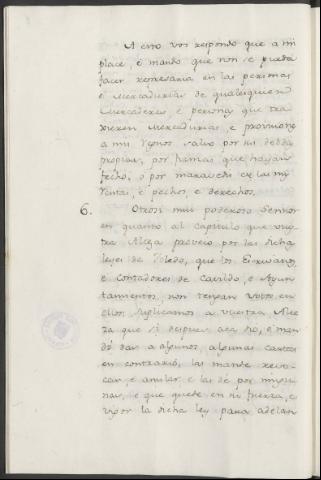 A esto vos respondo que a mi
place, é mando que non se pueda
facer represaria en las personas
é Mercadurias de qualesquier
Mercaderes, e personas que tra
xieren Mercadurias, e provisiones
a mis Regnos, salvo por sus debdas
propias, por fianzas que hayan
fecho, o por maravedis en las mis
rentas, e pechos, e derechos.
6. Otrosi mui poderoso Señor
en quanto al capitulo que vues
tra Alteza proveio por las dichas
leyes de Toledo, que los Escrivanos
e Contadores de Cavildo, e Ayun
tamientos, non tengan votos en
ellos. Suplicamos a vuestra Alte
za que si despues acá dió, e man
dó dar a algunos, algunas cartas
en contrario, las mande revo
car, e anular e las dé por ningu
nas, e que quede en su fuerza, e
vigor la dicha ley para adelan